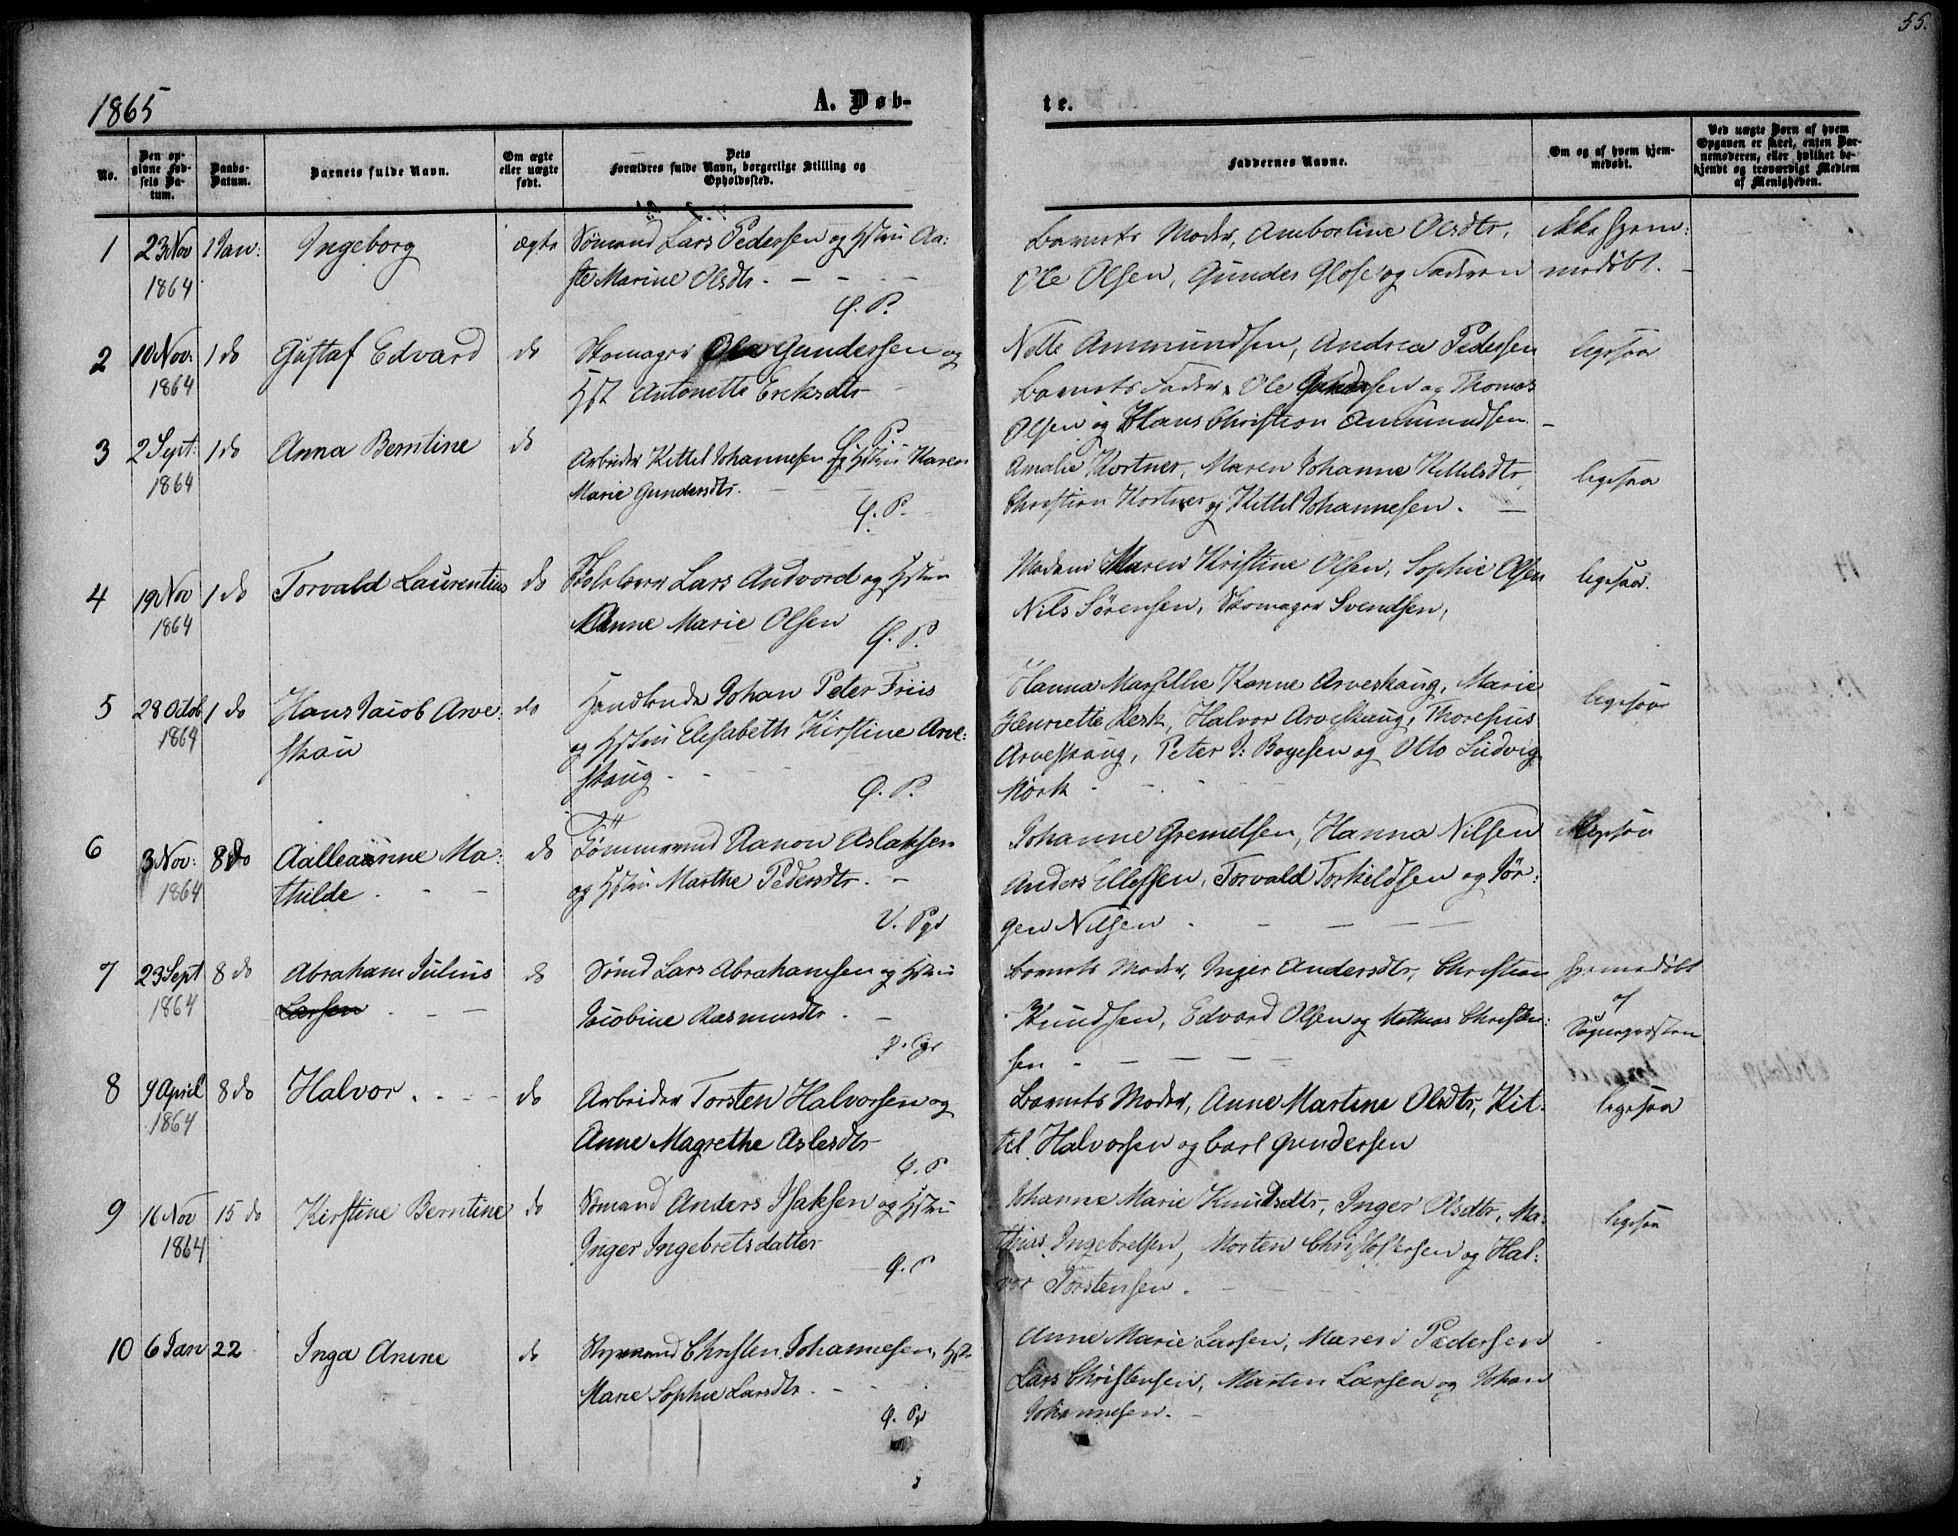 55.
1865
A. Døb-
te.
No.
Den op-
givne Fød-
sels Da-
tum.
Daabs-
Datum.
Barnets fulde Navn.
Om ægte
eller uægte
født.
Dets
Forældres fulde Navn, borgerlige Stilling og
Opholdssted.
Faddernes Navne.
Om og af hvem hjem-
medøbt.
Ved uægte Børn af hvem
Opgaven er skeet, enten Bar-
nemoderen, eller hvilket be-
kjendt og troværdigt Medlem
af Menigheden.
1 23 Nov 1864 1 Jan: Ingeborg ægte
Sømand Lars Pedersen og Hstru Aa:
ste Marine Olsdtr.
Q. P.
Barnets Moder, Amborline Olsdtr,
Ole Olsen, Gunder Glose og Faderen
ikke hjem:
medøbt.
2 10 Nov: 1864 1 do Gustaf Edvard do
Skomager Ole Gundersen og
Hst Antonette Ericksdtr
Q. P.
Nette Ammundsen, Andrea Pedersen
Barnets Fader, Ole Gundersen og Thomas
Olsen og Hans Christian Ammundsen
ligesaa
3 2 Sept: 1864 1 do Anna Berntine do
Arbeider Kittel Johannesen og Hstru Karen
Marie Gundersdtr.
Q. P.
Amalie Kortner, Maren Johanne Kittilsdtr,
Christian Kortner og Kittel Johannesen.
ligesaa
4 19 Nov 1864 1 do Torvald Laurentius do
Lars Andvord og Hstru
Anne Marie Olsen
Q. P.
Madam Maren Kristine Olsen, Sophie Olsen
Nils Sørensen, Skomager Svendsen,
ligesaa.
5 28 Octob 1864 1 do Hans Jacob Arve:
skau do
Handlende Johan Peter Friis
og Hstru Elisabeth Kirstine Arve:
skaug.
Q. P.
Hanna Marsellie Kanne Arveskaug, Marie
Henriette Lerk, Halvor Arveskaug, Thoresius
Arveskaug, Peter J: Boyesen og Otto Ludvig
Mørk
ligesaa
6 3 Nov: 1864 8 do Aalleanne Ma:
thilde do
Tømmermd Aanon Aslaksen
og Hstru Marthe Pedersdtr.
V. Pgd
Johanne Gremelsen, Hanna Nilsen
Anders Ellefsen, Torvald Torkildsen og Jør:
gen Nilsen
ligesaa
7 23 Sept 1864 8 do Abraham Julius
Larsen do
Sømd Lars Abrahamsen og Hstru
Jacobine Rasmusdtr.
Barnets Moder, Inger Andersdtr, Christian
Knudsen, Edvard Olsen og Mathias Christen:
sen
hjemedøbt
af
Sognepræsten
8 9 April 1864 8 do Halvor do
Arbeider Torsten Halvorsen og
Anne Magrethe Aslesdtr
Q. P
Barnets Moder, Anne Martine Olsdtr, Kit.
tel Halvorsen og Carl Gundersen
ligesaa
9 16 Nov 1864 15 do Kirstine Berntine do
Sømand Anders Isaksen og Hstru
Inger Ingebretsdatter
Q. P
Johanne Marie Knudsdtr, Inger Olsdtr, Ma:
thias Ingebretsen, Morten Christofersen og Hal:
vor Torstensen.
ligesaa
10 6 Jan 22 Inga Anine do
Styrmand Christen Johannesen, Hst.
Marie Sophie Larsdtr.
Q. Pgd
Anne Marie Larsen, Maren Pedersen
Lars Christensen, Martin Larsen og Johan
Johannesen.